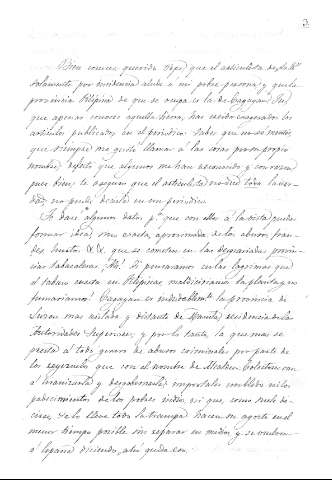 3
Bien conoces querido Pepe que el articulista de
solamente por incidencia alude á mi pobre persona, y que la
provincia Filipina de que se ocupa es la de Cagayan. Tú,
que apenas conoces aquella tierra, has creido exagerados los
artículos publicados en el periódico. Sabes que no se mentir,
que siempre me gusta llamar á las cosas por su propio
nombre, defecto que algunos me han reconocido y con razon
pues bien, te aseguro que el articulista no dice toda la ver-
dad, no puede decirla en un periodico.
Te daré algunos datos pª que con ellos á la vista puedas
formar idea, no exacta, aproximada de los abusos, frau-
des, hurtos &&, que se cometen en las desgraciadas provin-
cias tabacaleras. Ah! Si pensaramos en las lagrimas que
el tabaco cuesta en Filipinas maldeciriamos la planta y no
fumariamos! Cagayan es indudablemte la provincia de
Luzon mas aislada y distante de Manila, residencia de las
Autoridades Superiores, y por lo tanto, la que mas se
presta á todo genero de abusos criminales por parte de
los que con el nombre de Alcaldes Colectores van
á tiranizarla y desgobernarla; importales un bledo
padecimientos de los pobres indios, asi que, como suele de-
cirse, se lo lleve todo la trampa: hacen su agosto en el
menor tiempo posible sin reparar en medios, y se vuelven
á España diciendo, ahí queda eso.